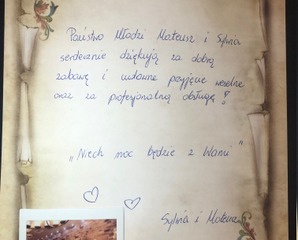 Państwo Młodzi Mateusz i Sylwia
serdecznie dziękują za dobrą
zabawę i cudowne przyjęcie weselne
oraz za profesjonalną obsługę!
„Niech moc będzie z Wami"
Sylwia i Mateusz